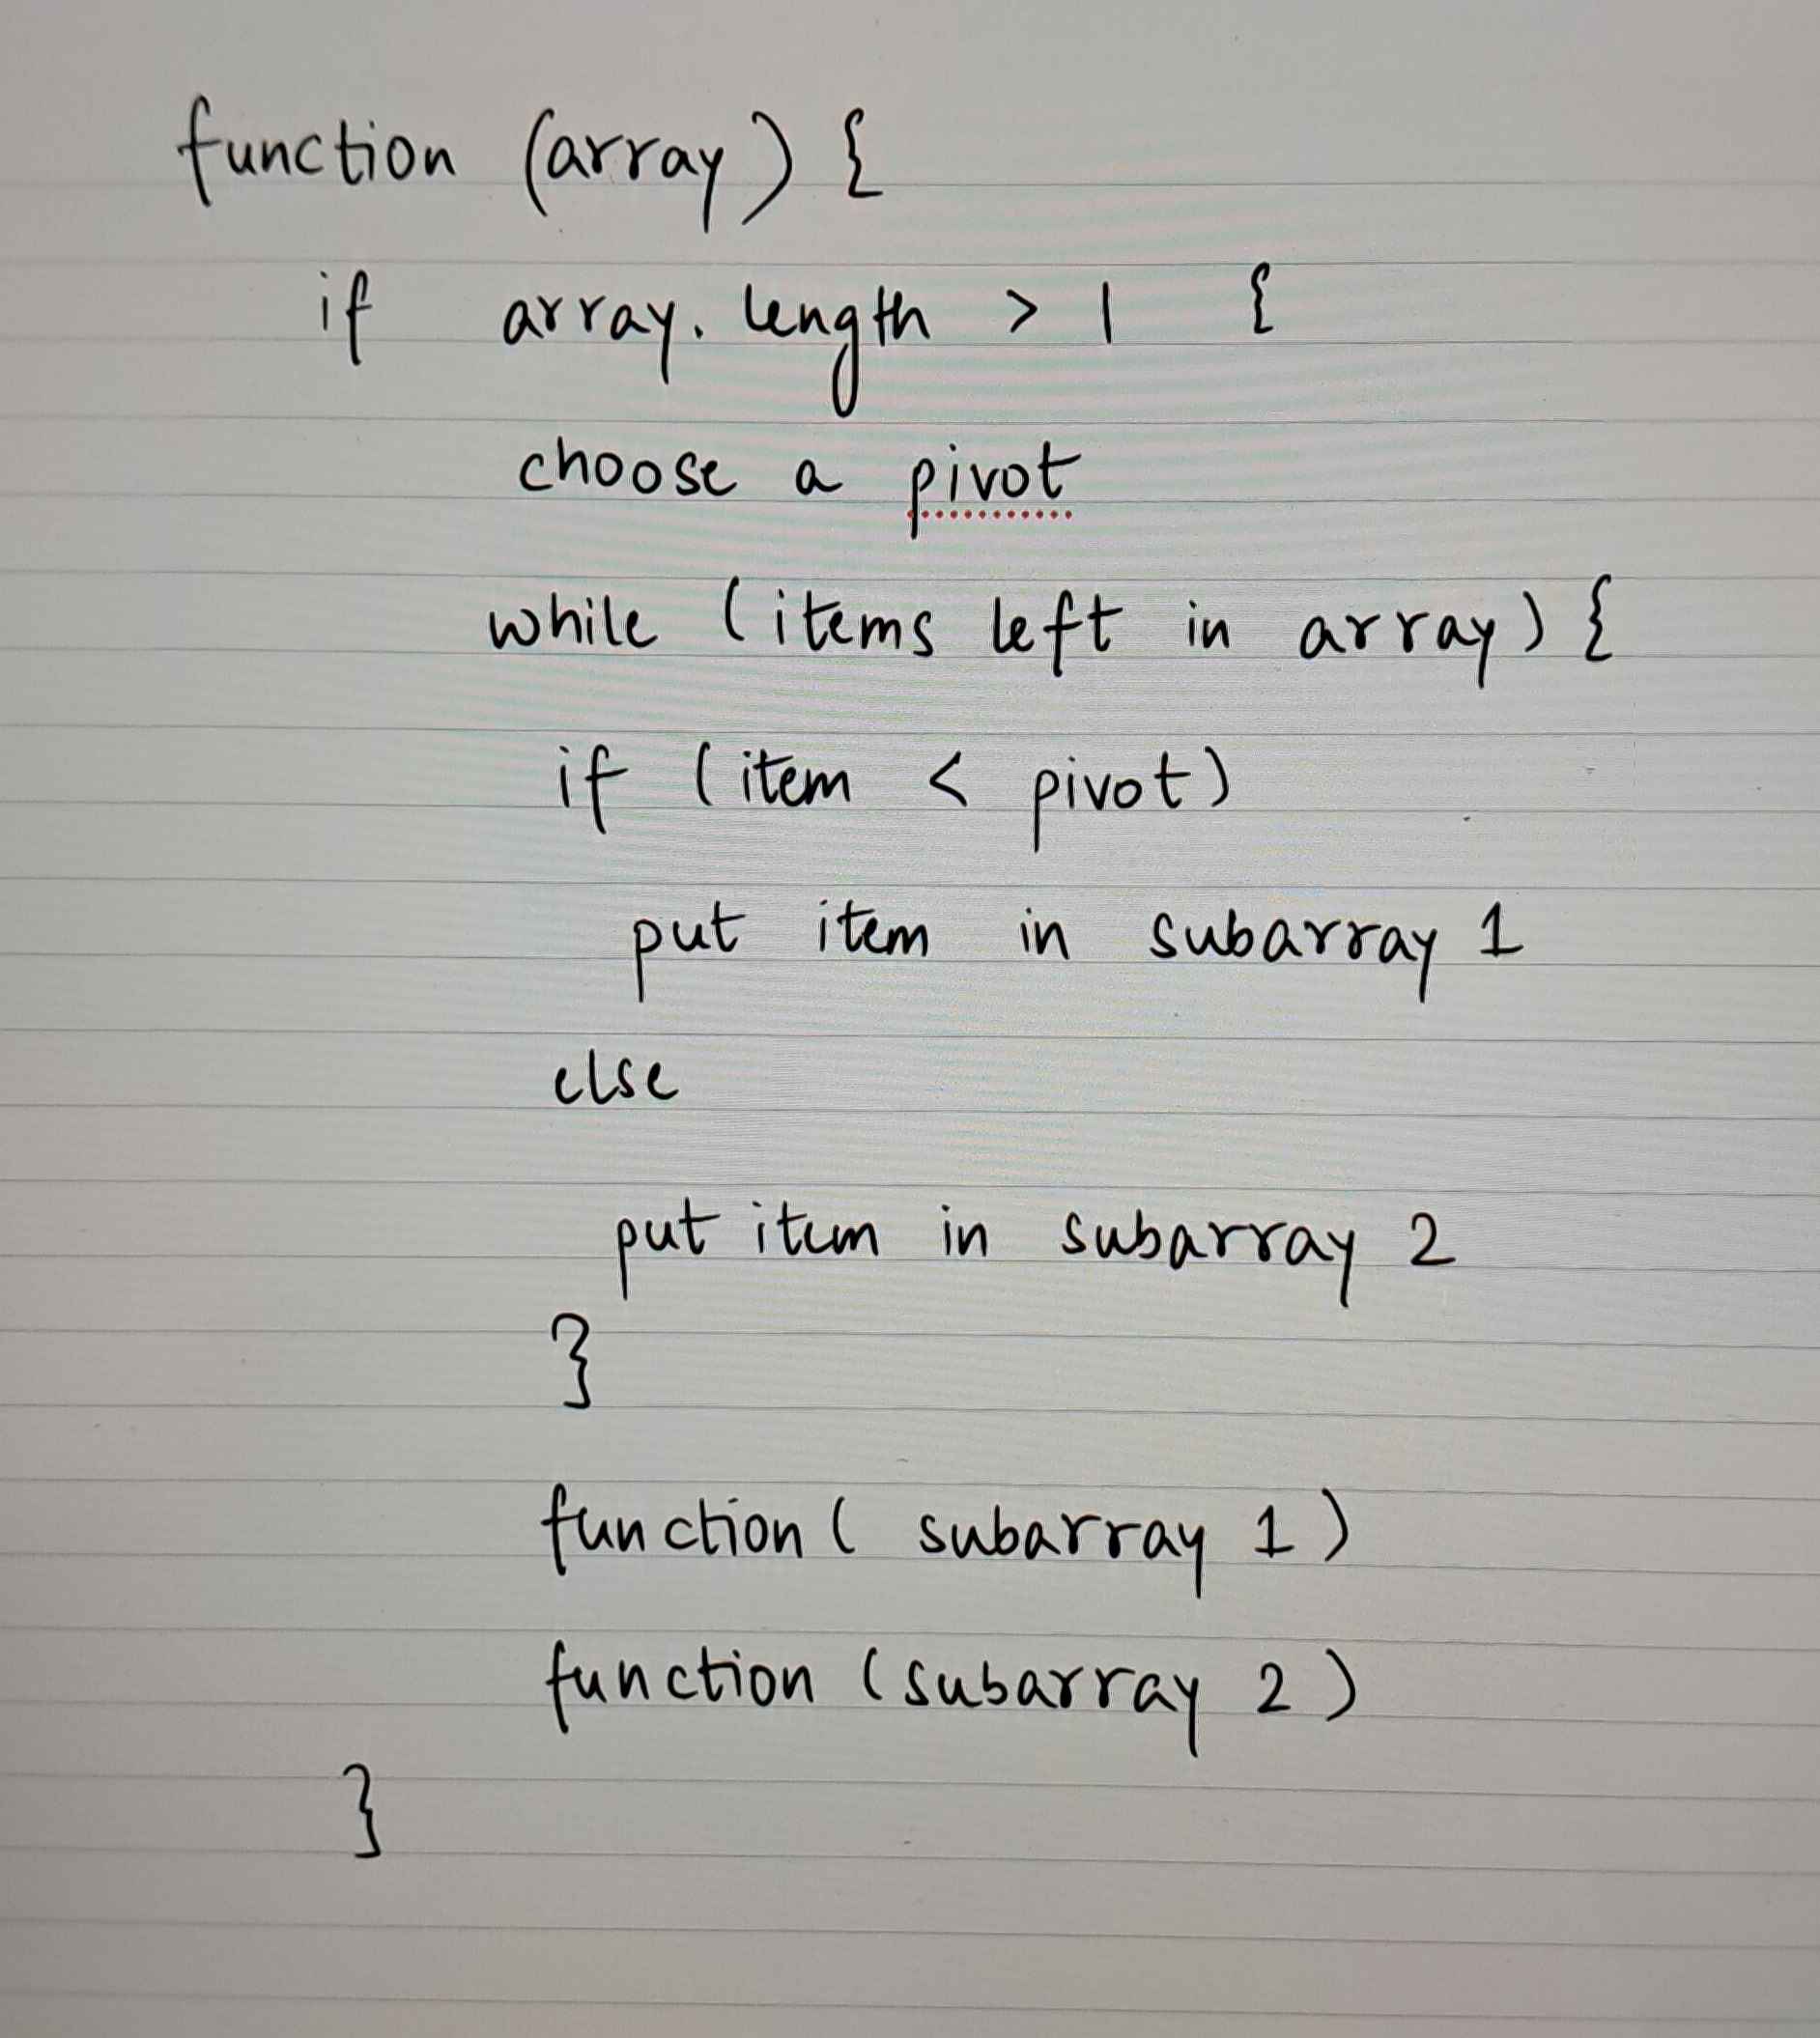 function (array) {
if array.length > 1 {
choose a pivot
while (items left in array) {
if (item < pivot)
put item in subarray 1
else
put item in subarray 2
}
function( subarray 1 )
function (subarray 2 )
}